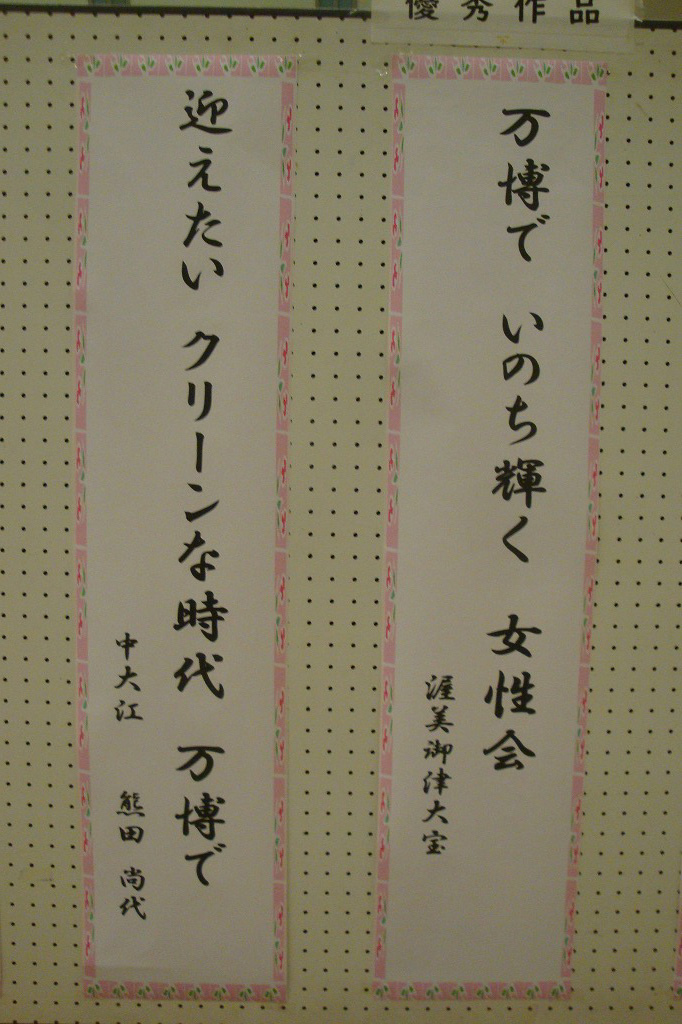 優秀作品
万博で いのち輝く 女性会
渥美御津大宝
迎えたい クリーンな時代 万博で
中大江 熊田 尚代